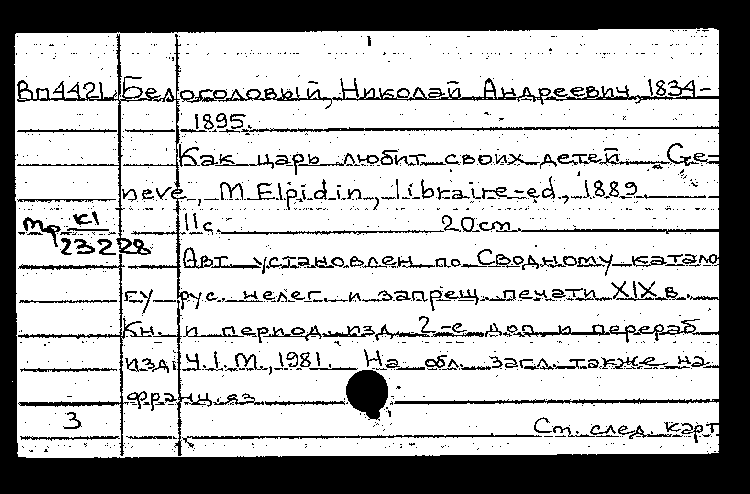 Вп4421 Белоголовый, Николай Андреевич, 1834-
1895.
Как царь любит своих детей. Ge-
neve, M. Elpidin, libraire-ed, 1889.
11с. 20cm.
тр К1
23228
Авт установлен по Сводному катало
гу рус. нелег. и запрещ. печати XIX в.
Кн. и период. изд. 2-е доп. и перераб
изд. Ч.I. М., 1981. На обл. загл. также на
франц. яз
3
См. след. карт